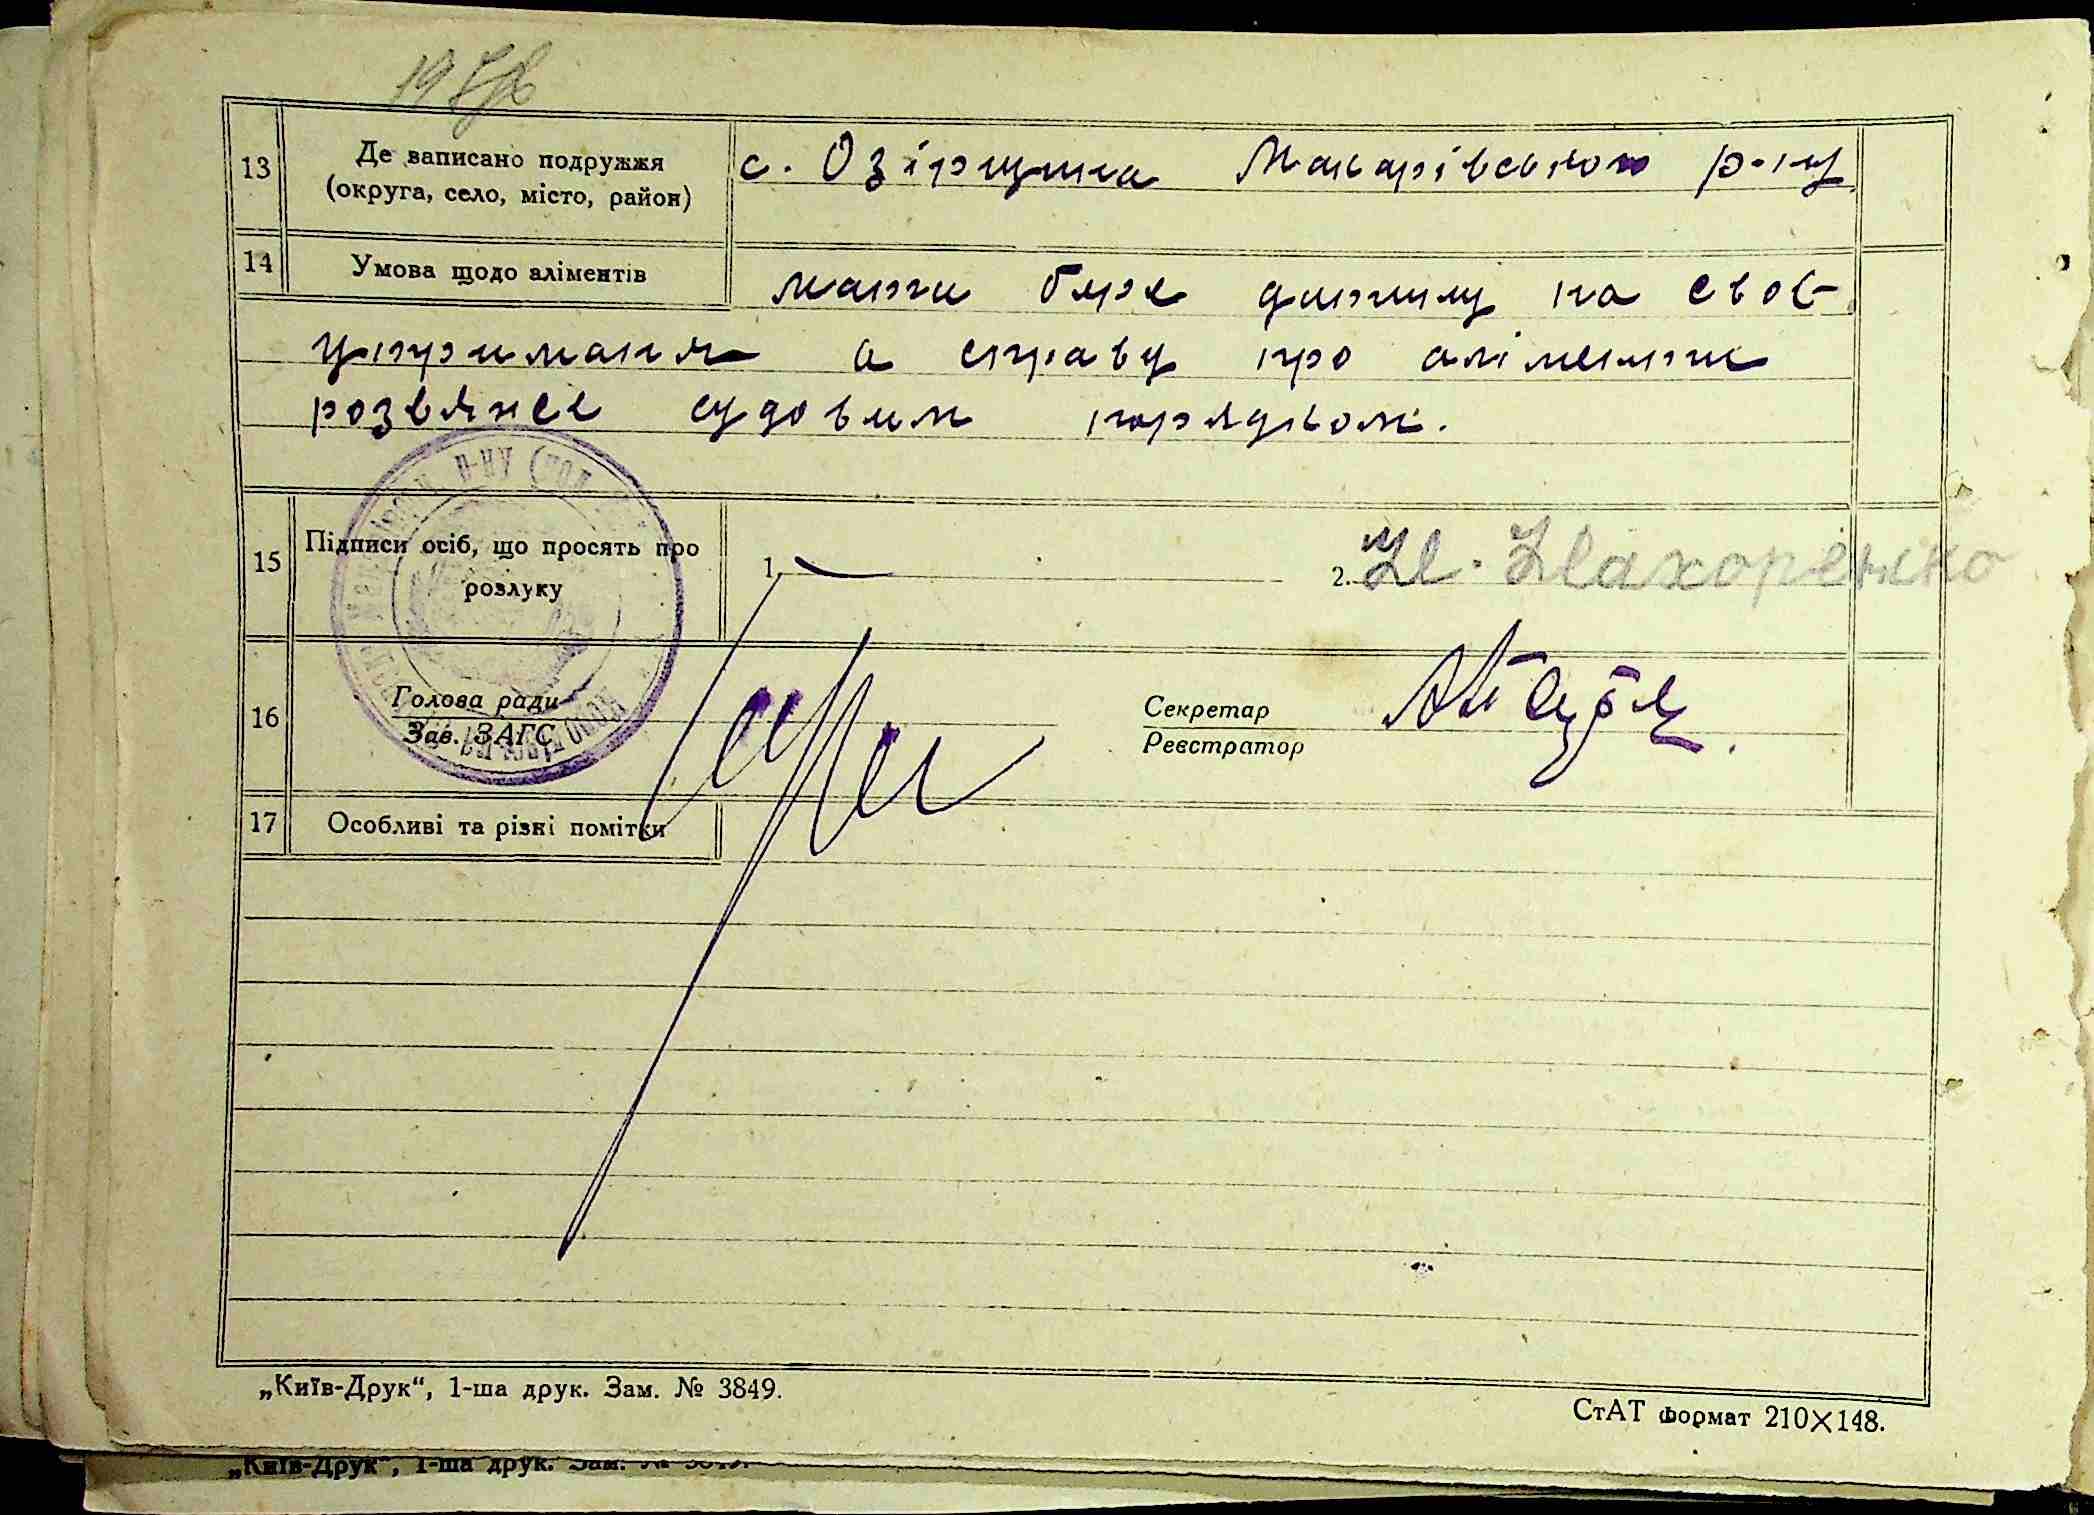 13
Де записано подружжя
(округа, село, місто, район)
с. Озірщина Макарівського р-ну
14
Умова щодо аліментів
мати бере дитину на своє
утримання а справу про аліменти
розвяже судовим порядком.
15
Підписи осіб, що просять про
розлуку
1. —
2.
16
Голова ради
Зав. ЗАГС
Секретар
Реєстратор
17
Особливі та різні помітки
„Київ-Друк“, 1-ша друк. Зам. № 3849.
СтАТ формат 210×148.
„Київ-Друк“, 1-ша друк. Зам. №